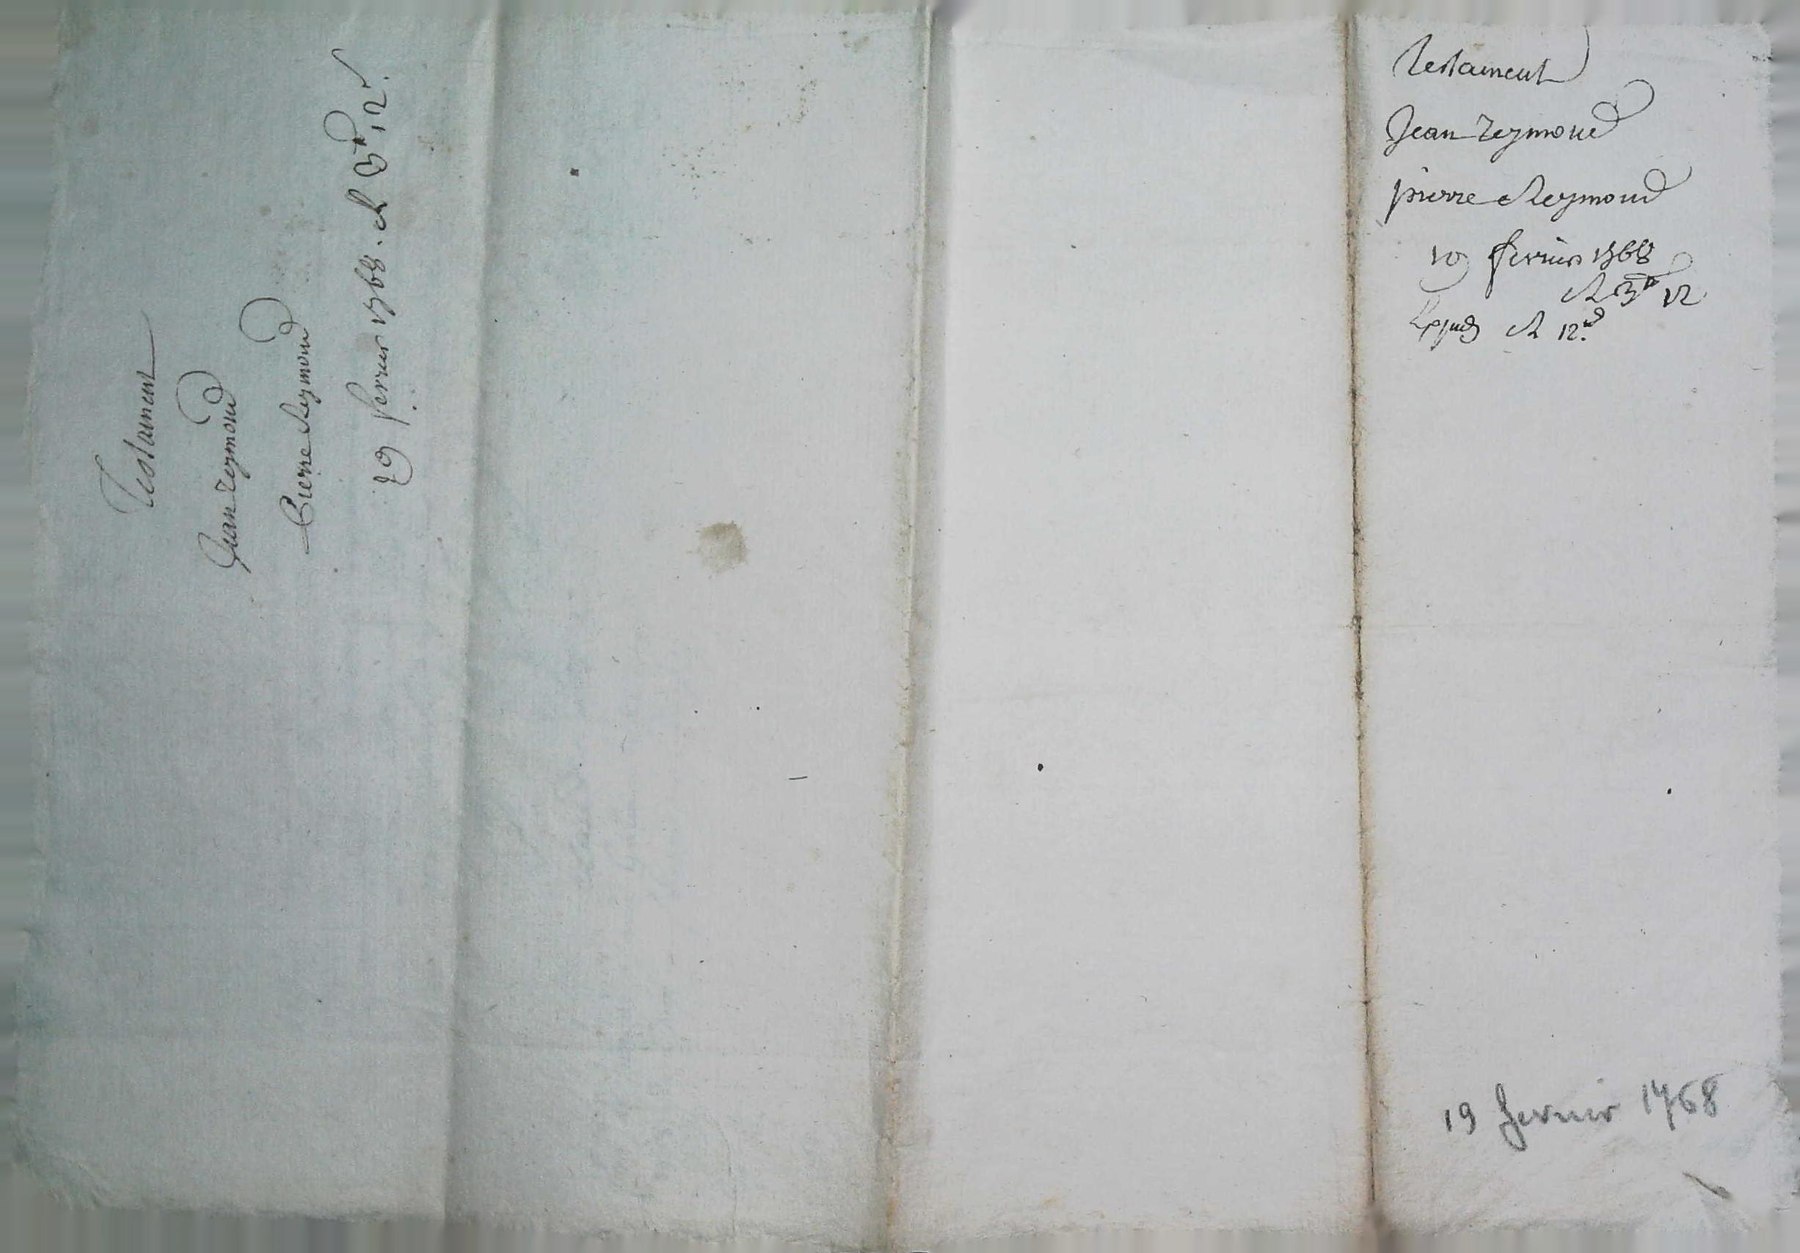 Testament
Jean Reymond
Pierre Reymond
19 fevrier 1768. R 3# 12
Testament
Jean Reymond
pierre Reymond
19 fevrier 1768
R 3# 12
R 12
19 fevrier 1768